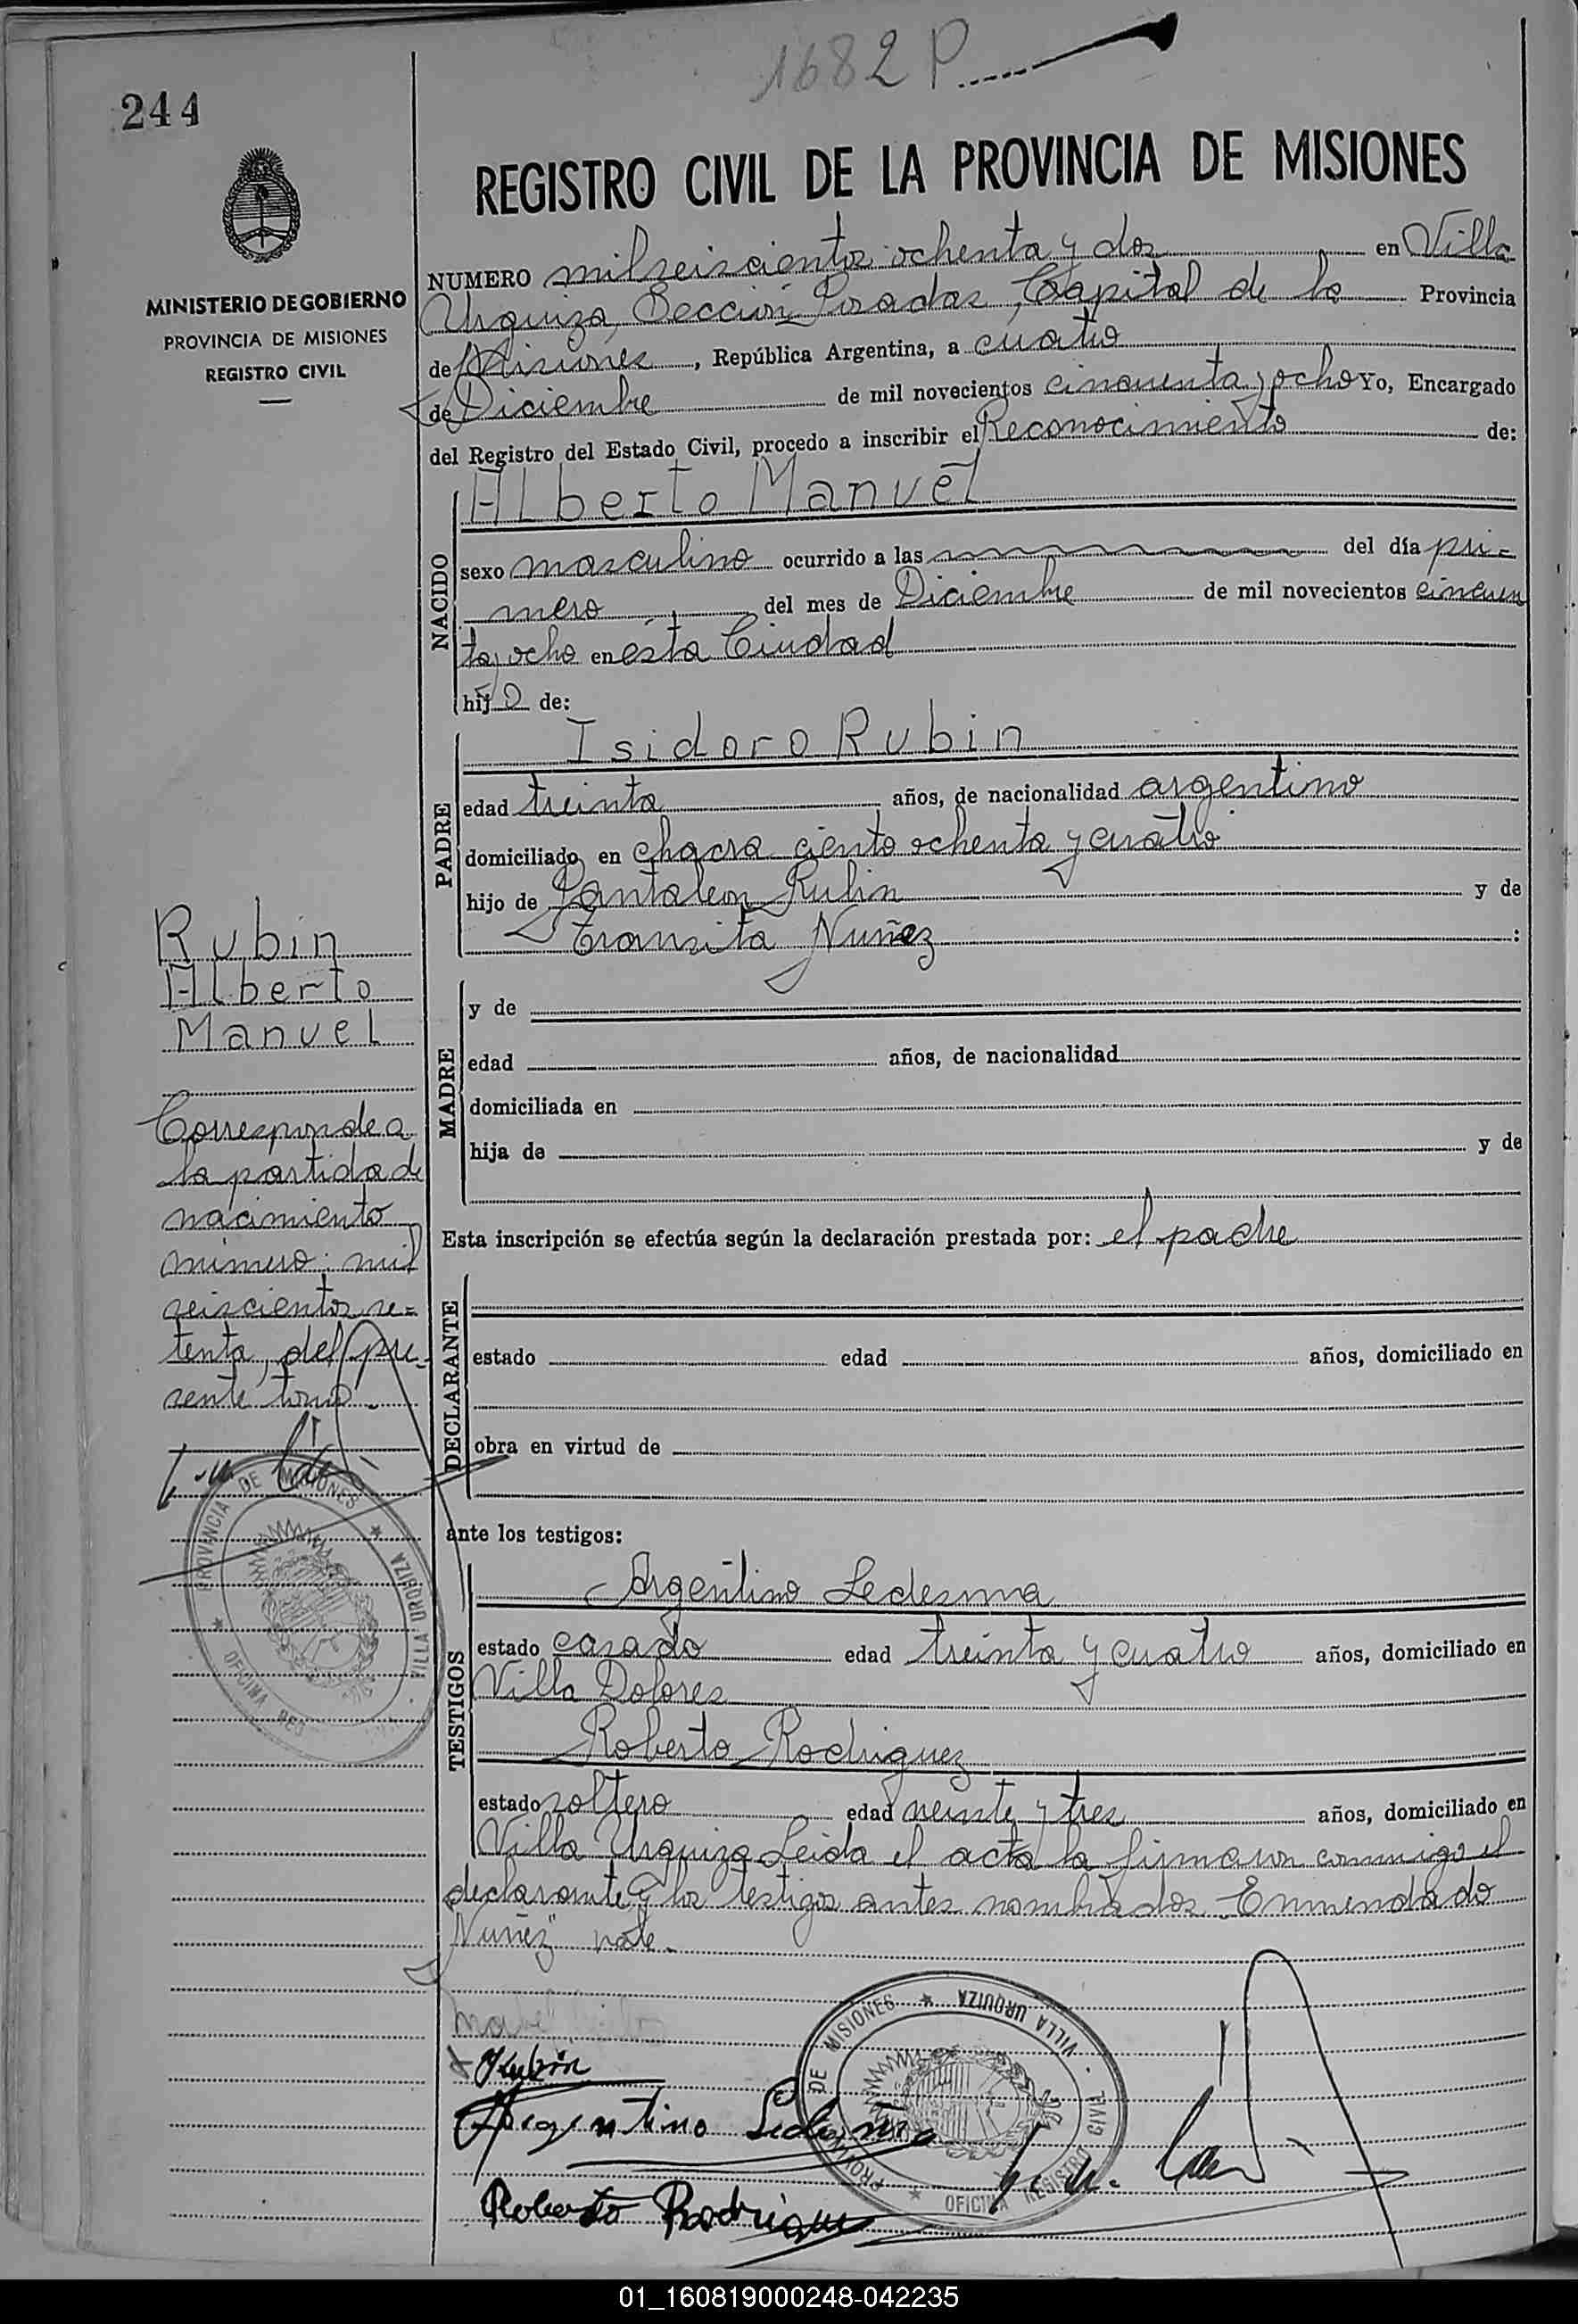 1682 P
244
REGISTRO CIVIL DE LA PROVINCIA DE MISIONES
MINISTERIO DE GOBIERNO
PROVINCIA DE MISIONES
REGISTRO CIVIL
NUMERO mil seiscientos ochenta y dos en Villa
Urquiza, Sección Posadas, Capital de la Provincia
de Misiones, República Argentina, a cuatro
de Diciembre de mil novecientos cincuenta y ocho Yo, Encargado
del Registro del Estado Civil, procedo a inscribir el Reconocimiento de:
NACIDO
Alberto Manuel
sexo masculino ocurrido a las del día pri=
mero del mes de Diciembre de mil novecientos cincuen
ta y ocho en ésta Ciudad
hijo de:
PADRE
Isidoro Rubin
edad treinta años, de nacionalidad argentino
domiciliado en chacra ciento ochenta y cuatro
hijo de Pantaleon Rubin y de
Transita Nuñez :
Rubin
Alberto
Manuel
Corresponde a
la partida de
nacimiento
número: mil
seiscientos se=
tenta, del pre-
sente tomo.
MADRE
y de
edad años, de nacionalidad
domiciliada en
hija de y de
Esta inscripción se efectúa según la declaración prestada por: el padre
DECLARANTE
estado edad años, domiciliado en
obra en virtud de
ante los testigos:
TESTIGOS
Argentino Ledesma
estado casado edad treinta y cuatro años, domiciliado en
Villa Dolores
Roberto Rodriguez
estado soltero edad veinte y tres años, domiciliado en
Villa Urquiza Leida el acta la firmaron conmigo el
declarante y los testigos antes nombrados. Enmendado
"Nuñez" vale.
PROVINCIA DE MISIONES ★ VILLA URQUIZA · ★ OFICINA REG
Rubin
Argentino Ledesma
Roberto Rodriguez
PROVINCIA DE MISIONES ★ VILLA URQUIZA · ★ OFICINA REGISTRO CIVIL
01_160819000248-042235